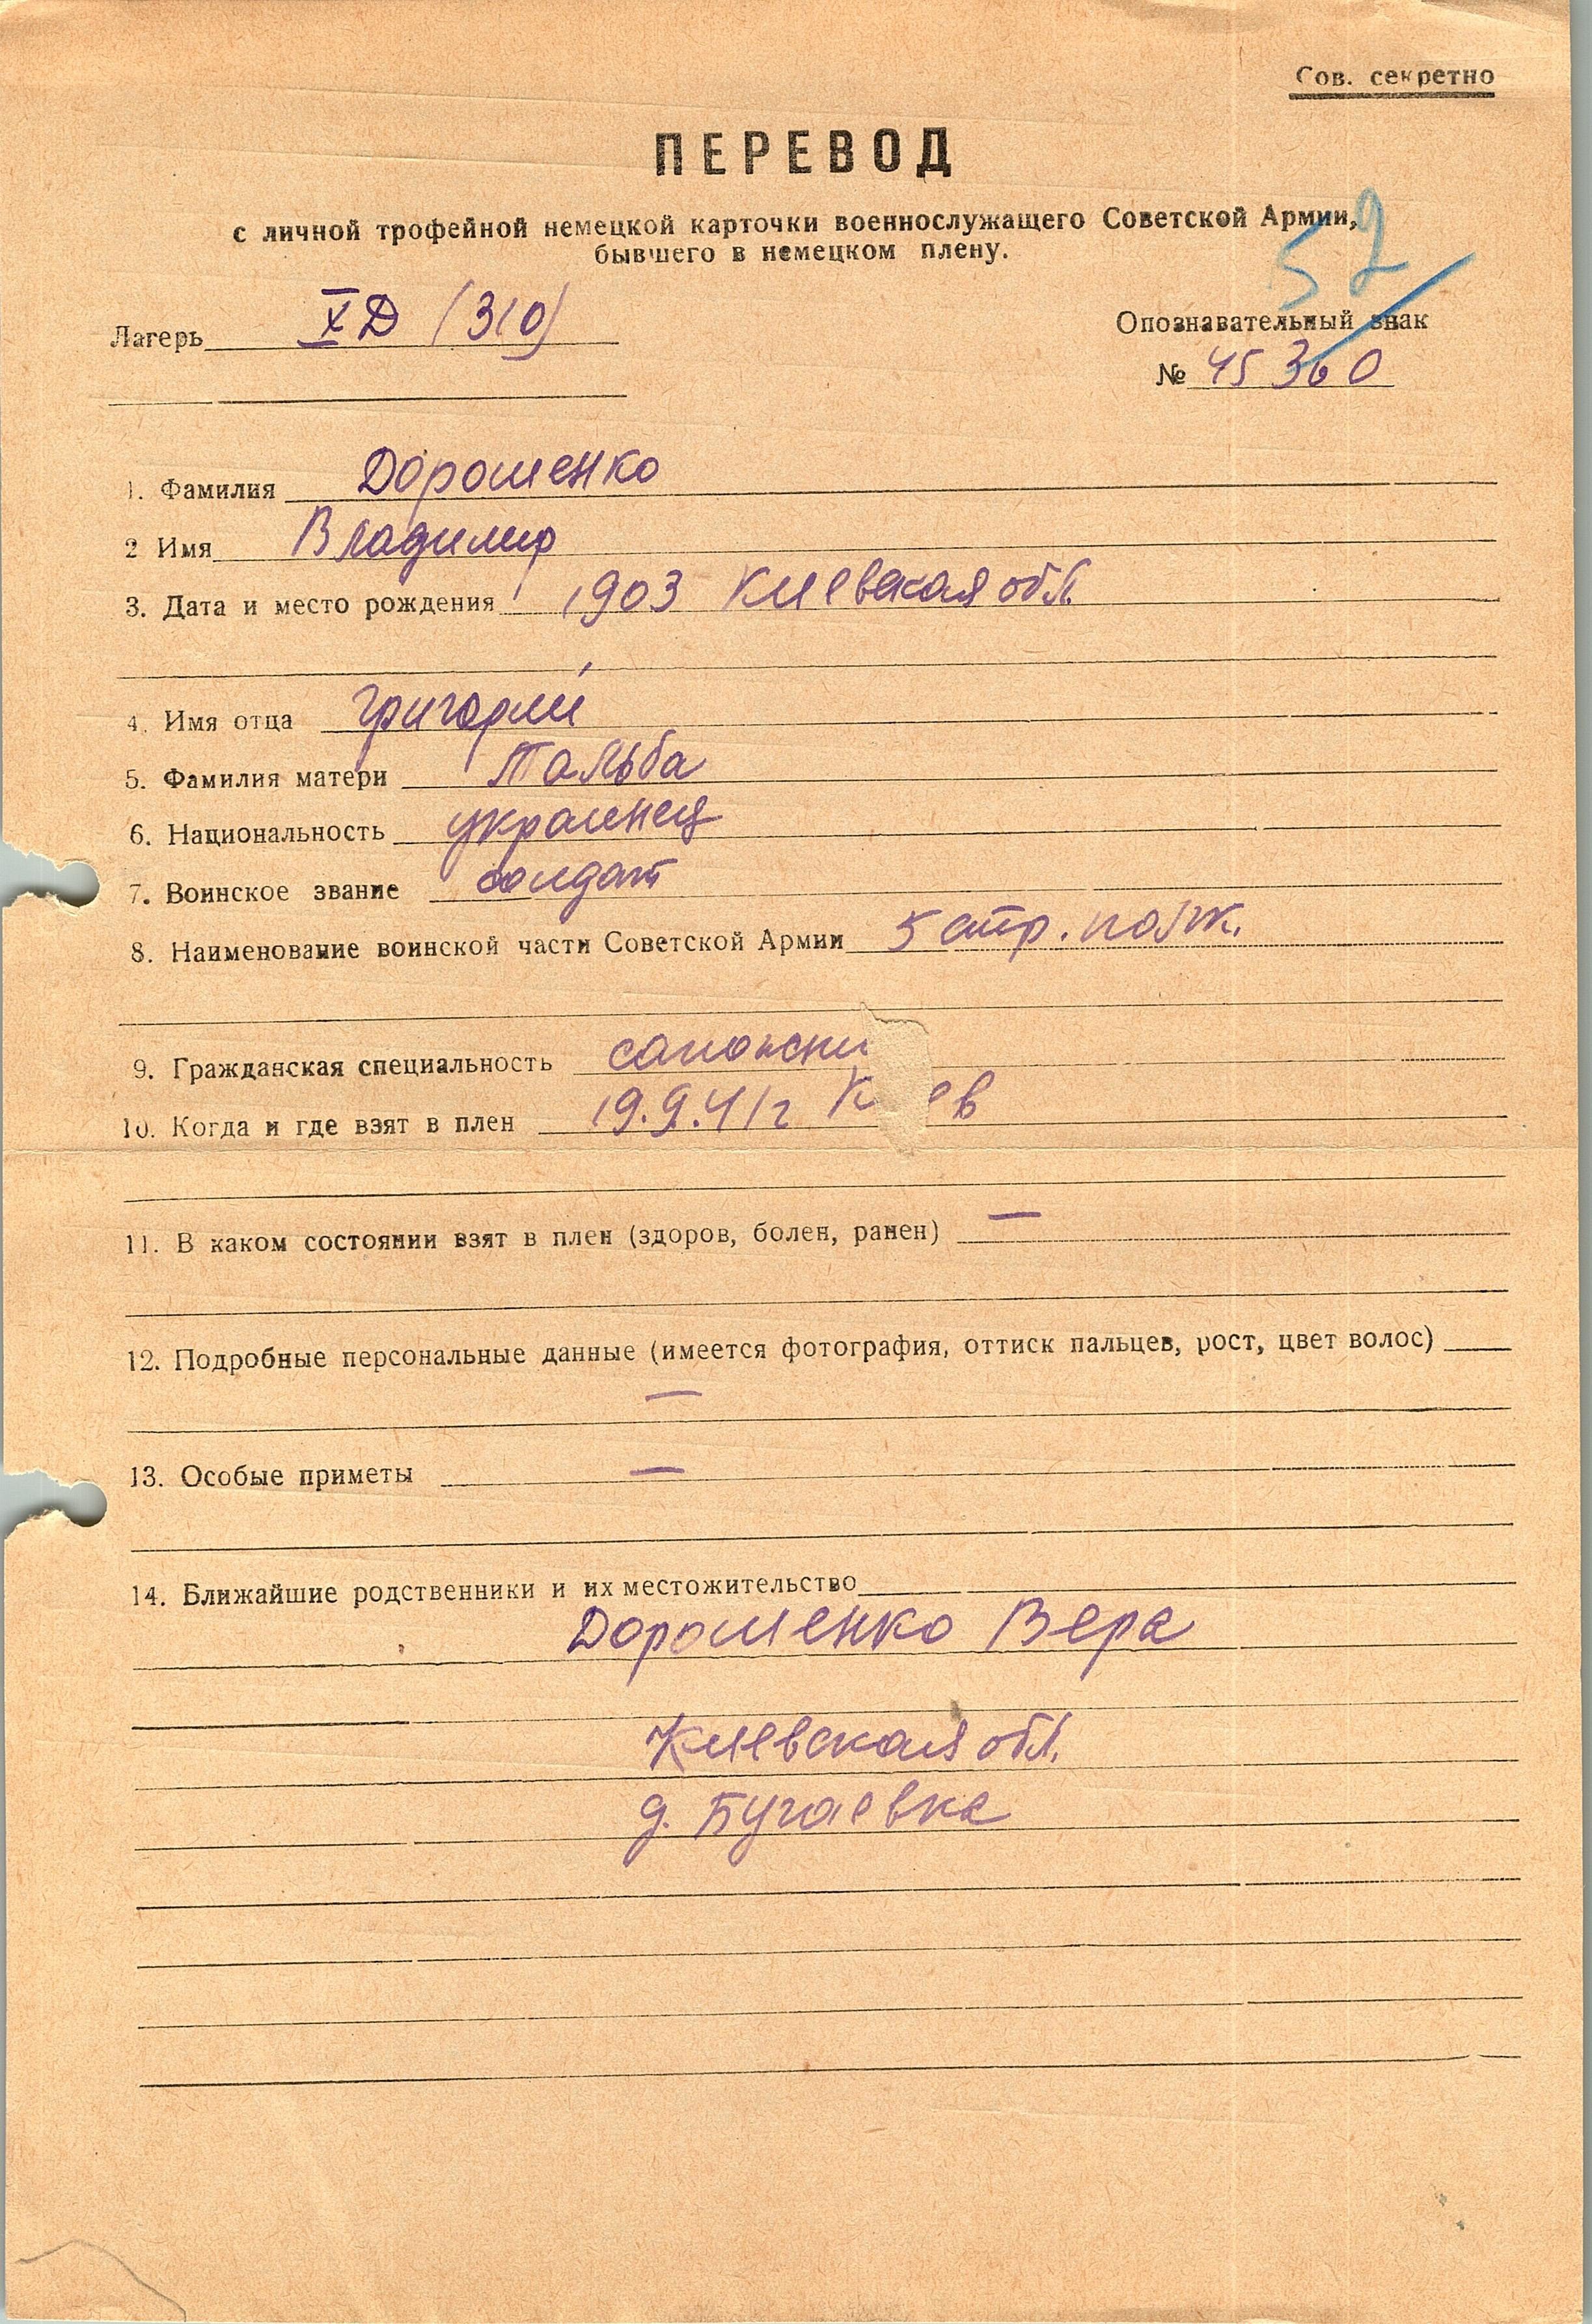 Сов. секретно
ПЕРЕВОД
с личной трофейной немецкой карточки военнослужащего Советской Армии,
бывшего в немецком плену.
52
Лагерь XД (310)
Опознавательный знак
№ 45360
1. Фамилия Дорошенко
2 Имя Владимир
3. Дата и место рождения 1903 Киевская обл.
4. Имя отца Григорий
5. Фамилия матери Тальба
6. Национальность украинец
7. Воинское звание солдат
8. Наименование воинской части Советской Армии 5 стр. полк.
9. Гражданская специальность сапожни
10. Когда и где взят в плен 19.9.41г К ев
11. В каком состоянии взят в плен (здоров, болен, ранен) —
12. Подробные персональные данные (имеется фотография, оттиск пальцев, рост, цвет волос)
—
13. Особые приметы —
14. Ближайшие родственники и их местожительство
Дорошенко Вера
Киевская обл.
д. Бугаевка